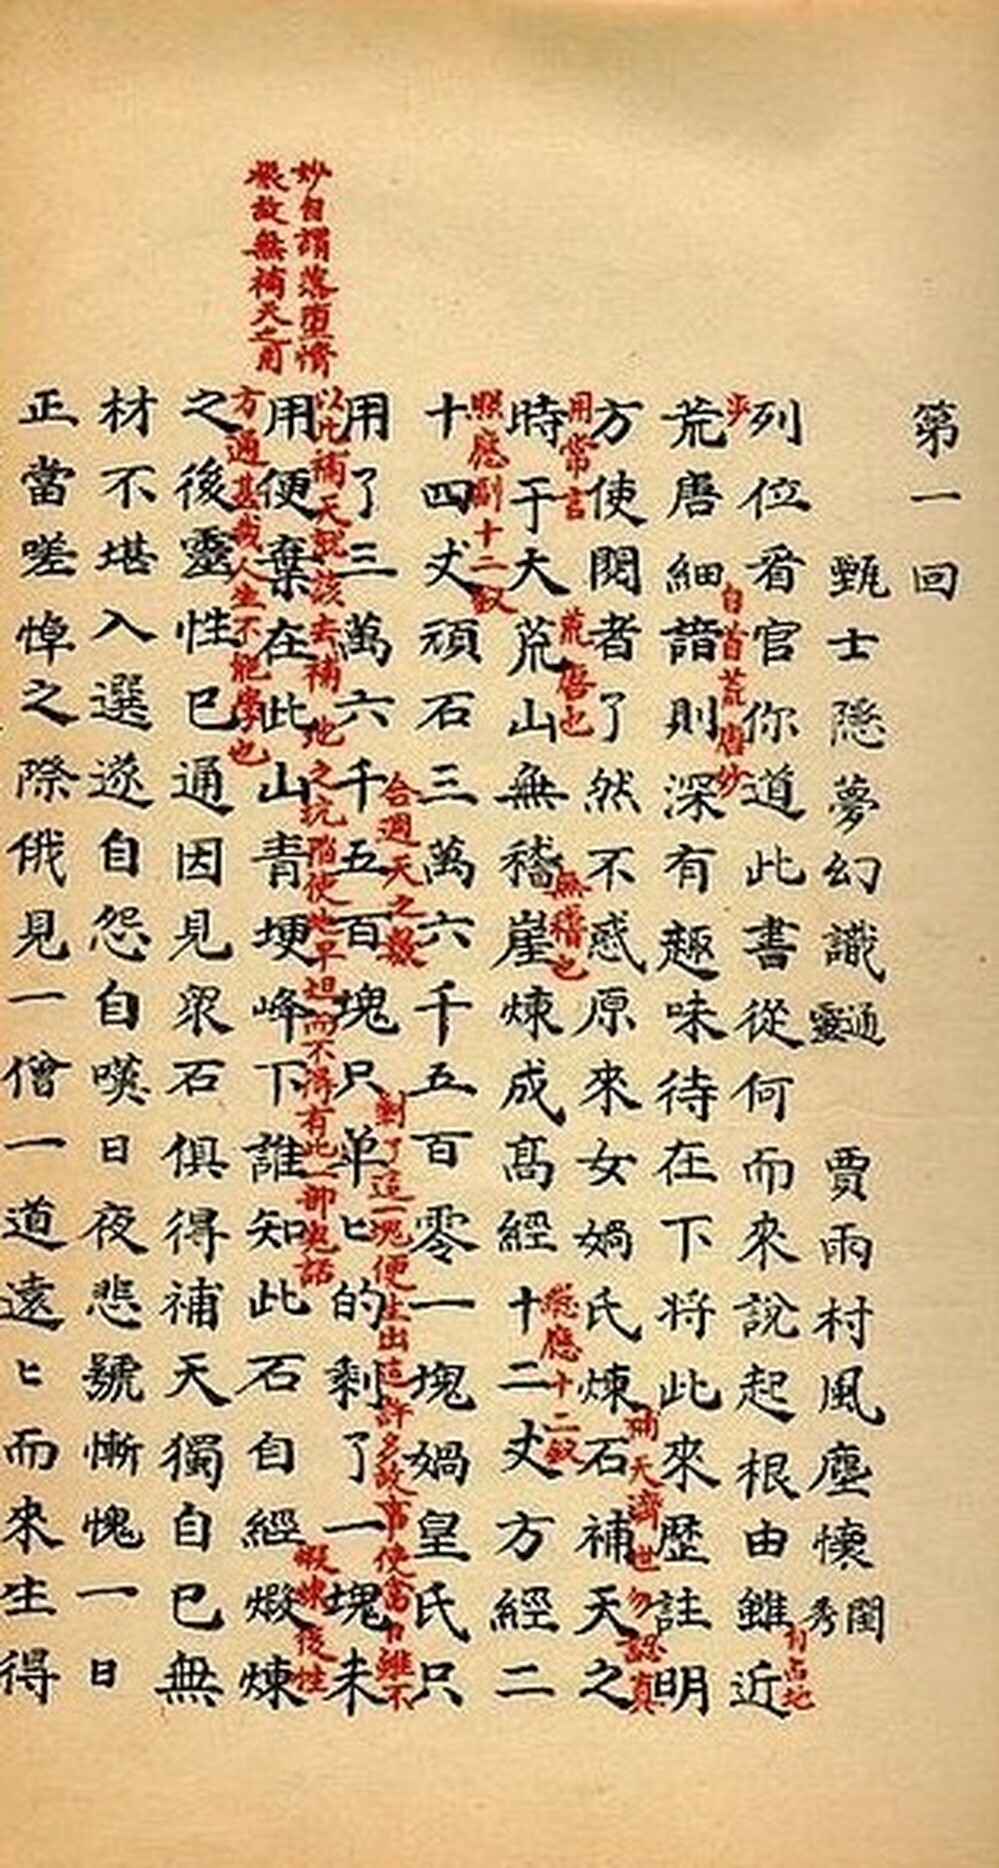 第一回
甄士隱夢幻識通靈　賈雨村風塵懷閨秀
列位看官你道此書從何而來說起根由雖近
自占地
步
自首荒唐妙
荒唐細諳則深有趣味待在下將此來歷註明
方使閱者了然不惑原來女媧氏煉石補天之
補天濟世勿認真
用常言
時于大荒山無稽崖煉成高經十二丈方經二
荒唐也
無稽也
總應十二釵
十四丈頑石三萬六千五百零一塊媧皇氏只
照應副十二釵
用了三萬六千五百塊只单匕的剩了一塊未
合週天之數
剩了這一塊便生出這許多故事使當日雖不
以此補天就該去補地之坑陷使地平坦而不得有此一部鬼話
用便棄在此山青埂峰下誰知此石自經煅煉
妙自謂落墮情
根故無補天之用
煅煉後性
方通甚哉人生不能學也
之後靈性已通因見衆石俱得補天獨自己無
材不堪入選遂自怨自嘆日夜悲號慚愧一日
正當嗟悼之際俄見一僧一道遠匕而來生得